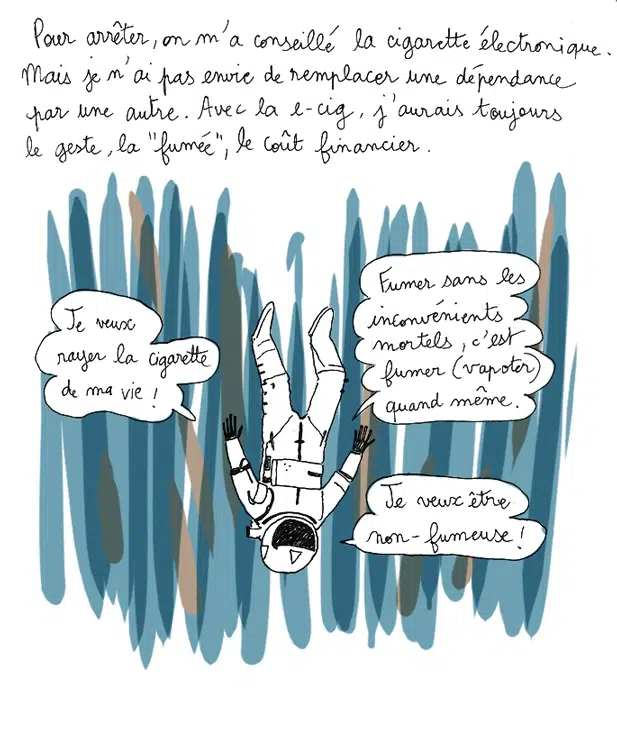 Pour arrêter, on m'a conseillé la cigarette électronique.
Mais je n'ai pas envie de remplacer une dépendance
par une autre. Avec la e-cig, j'aurais toujours
le geste, la "fumée", le coût financier.
Je veux
rayer la cigarette
de ma vie !
Fumer sans les
inconvénients
mortels, c'est
fumer (vapoter)
quand même.
Je veux être
non-fumeuse !